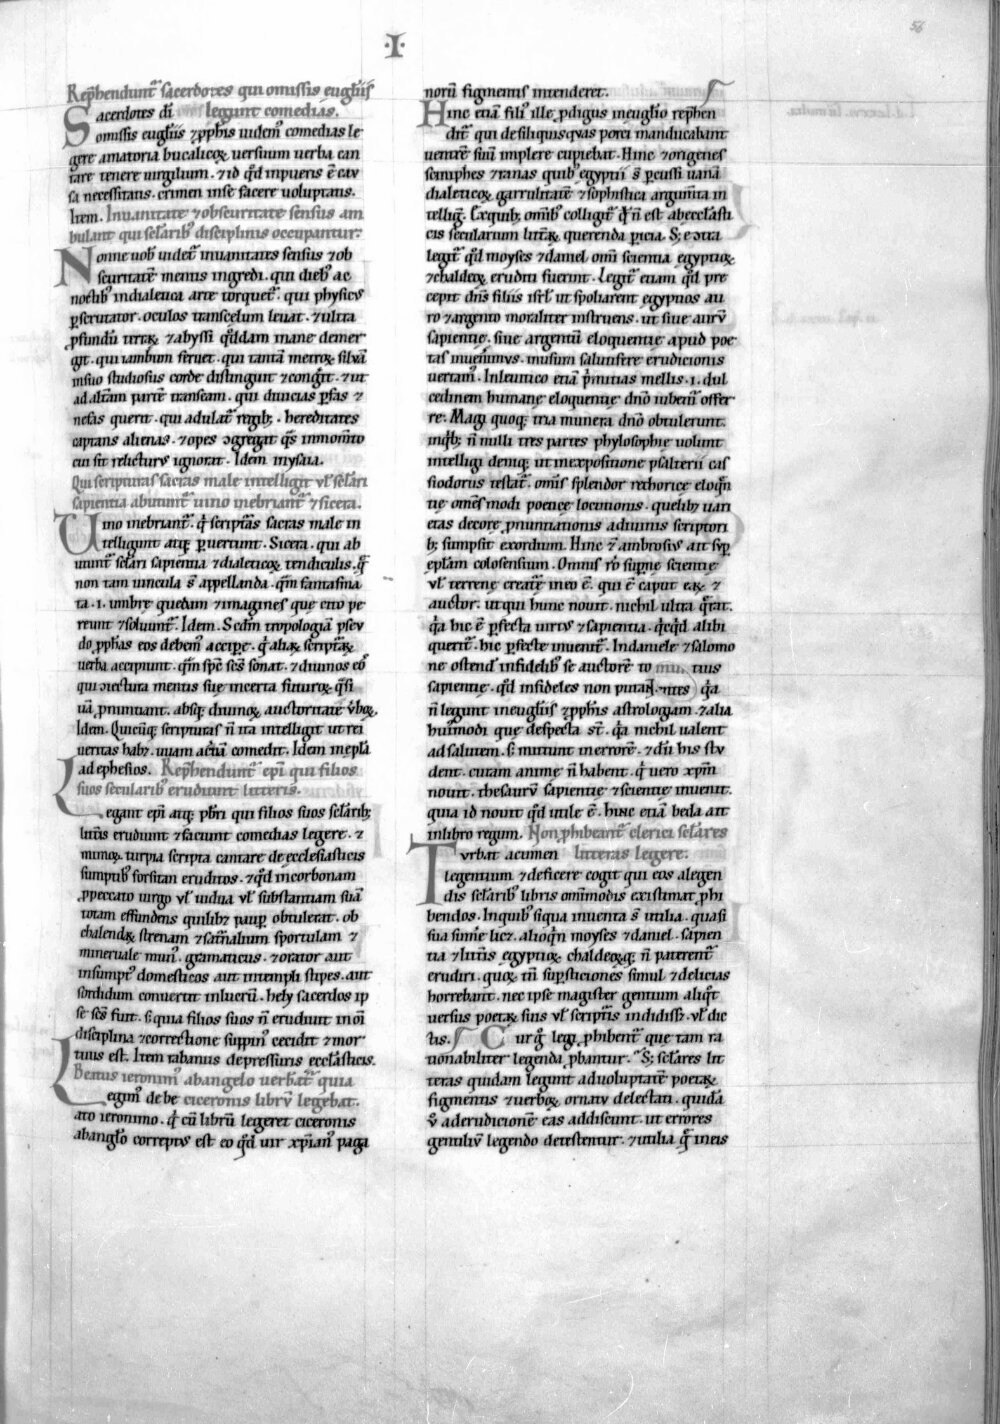 56
·I·
Rep̄hendunt᷑ sacerdores qui omissis eugl̄iis
Sacerdotes dī legunt comedias.
omissis eugl̄iis ⁊ ꝓph̄is uidem᷒ comedias le
gere amatoria bucalicoꝝ uersuum uerba can
tare tenere uirgilium. ⁊ id qđ inpueris ē cau
sa necessitatis. crimen inse facere uoluptatis.
Item. Inuanitate ⁊ obscuritate sensus am
bulant qui sclarib᷒ disciplinis occupantur.
Nonne uob̄ uidet᷑ inuanitatis sensus ⁊ ob
scuritatē mentis ingredi. qui dieb᷒ ac
noctib᷒ indialetica arte torquet᷑. qui physicus
ꝑscrutator. oculos transcelum leuat. ⁊ ultra
ꝓfundū tr̄raꝝ ⁊ abyssi qddam inane demer
git. qui iambum seruet. qui tantā metroꝝ siluā
insuo studiosus corde distinguit ⁊ congr̄it. ⁊ ut
ad altām partē transeam. qui diuicias ꝑfas ⁊
nefas querit. qui adulat᷑ regib;. hereditates
captans alienas. ⁊ opes ↄgregat qs inmom̄to
cui sit relicturus ignorat. Idem inysaia.
Qui scripturas sacras male intelligit vl̄ sclari
sapientia abutunt᷑ uino inebriant᷑ ⁊ sicera.
Uino inebriant᷑. q̄ scripturas sacras male in
telligunt atq; ꝑuertunt. Sicera. qui ab
utunt᷑ sclari sapientia ⁊ dialeticoꝝ tendiculis. q̄
non tam uincula s̄ appellanda. qm̄ fantasma
ta .i. umbrę quedam ⁊ imagines que cito pe
reunt ⁊ soluunt᷑. Idem. Scdm̄ tropologiā pseu
do ꝓph̄as eos debem᷒ accipe. q̄ aliaꝝ scriptaꝝ
uerba accipiunt. qm̄ spc̄ scs̄ sonat. ⁊ diuinos eo᷒
qui ↄiectura mentis sue incerta futuroꝝ q̄si
uā ꝓnuntiant. absq; diuinoꝝ auctoritate v̄boꝝ.
Idem. Quicūq; scripturas n̄ ita intelligit ut rei
ueritas habꝫ. uuam ac̄bā comedit. Idem inepl̄a
ad ephesios. Rep̄hendunt᷑ epī qui filios
suos secularib᷒ erudiunt litteris.
Legant epī atq; pbr̄i qui filios suos sclārib;
litt̄is erudiunt ⁊ faciunt comedias legere. ⁊
mimoꝝ turpia scripta cantare de ecclesiasticis
sumptib᷒ forsitan eruditos. ⁊ qđ incorbonam
ꝓ peccato uirgo vl̄ uidua vl̄ substantiam suā
totam effundens quilibꝫ paup̄ obtulerat. ob
chalendaꝝ strenam ⁊ sat̄nalium sportulam ⁊
mineruale mun᷒. gramaticus. ⁊ orator aut
insumpt᷒ domesticos aut intempli stipes. aut
sordidum conuertit inlucrū. hely sacerdos ip
se scs̄ fuit. s; quia filios suos n̄ erudiuit in om̄i
disciplina ⁊ correctione suppin᷒ cecidit ⁊ mor
tuus est. Item rabanus de pressuris eccl̄asticis.
Beatus ieronim᷒ abangelo uerbat᷑ quia
Legim᷒ de be ciceronis librū legebat.
ato ieronimo. q̄ cū librū legeret ciceronis
abanglo correptus est eo qđ uir xp̄ian᷒ paga
norū figmentis intenderet.
Hinc etiā fili᷒ ille ꝓdigus ineuglio rep̄hen
dit᷑ qui desiliquis quas porci manducabant
uentrē suū implere cupiebat. Hinc ⁊ origenes
sciniphes ⁊ ranas quib᷒ egyptii s̄ pcussi uanā
dialeticoꝝ garrulitatē ⁊ sophistica argum̄ta in
tellig᷑. Exquib; om̄ib᷒ colligit᷑ q̄ n̄ est abeccl̄asti
cis secularium litt̄aꝝ querenda picia. S; e ↄtra
legit᷑ qđ moyses ⁊ daniel om̄i scientia egyptioꝝ
⁊ chaldeoꝝ eruditi fuerint. Legit᷑ etiam qđ pre
cepit dn̄s filiis isrl̄ ut spoliarent egyptios au
ro ⁊ argento moraliter instruens. ut siue aurū
sapientię. siue argentū eloquentie apud poe
tas inuenim᷒. inusum salutiferę erudicionis
uertam᷒. Inleuitico etiā p̄mitias mellis .i. dul
cedinem humanę eloquentię dn̄o iubem᷒ offer
re. Magi quoq; tria munera dn̄o obtulerunt.
inq̄b; n̄ nulli tres partes phylosophię uolunt
intelligi deniq; ut inexpositione psalterii cas
siodorus testat᷑. om̄is splendor rethoricę eloq̄n
tię om̄es modi poeticę locutionis. quelibꝫ uari
etas decorę ꝓnuntiationis adiuinis scriptori
b; sumpsit exordium. Hinc ⁊ ambrosius ait sup̄
epl̄am colosensium. Omnis r̄o sup̄nę scientię
vl̄ terrenę creat᷑ę ineo ē. qui ē caput eaꝝ ⁊
auctor. ut qui hunc nouit. nichil ultra q̄rat.
q̄a hic ē ꝑfecta uirtus ⁊ sapientia. q̄cq̄d alibi
querit᷑. hic ꝑfecte inuenit᷑. Indaniele ⁊ salomo
ne ostend᷑ infidelib᷒ se auctorē to tius
sapientię. qđ infideles non putant q̄a
n̄ legunt ineugliis ⁊ ꝓph̄is astrologiam. ⁊ alia
hui᷒modi que despecta st̄. q̄a nichil ualent
ad salutem. s; mittunt in errorē. ⁊ dū his stu
dent. curam animę n̄ habent. q̄ uero xp̄m
nouit. thesaurū sapientię ⁊ scientię inuenit.
quia id nouit qđ utile ē. hinc etiā beda ait
inlibro regum. Non ꝓhibeant᷑ clerici sclares
Turbat acumen litteras legere.
legentium ⁊ deficere cogit qui eos alegen
dis sclarib᷒ libris om̄imodis existimat ꝓhi
bendos. Inquib᷒ siqua inuenta s̄ utilia. quasi
sua sumere licꝫ. alioq̄n moyses ⁊ daniel. sapien
tia ⁊ litt̄is egyptioꝝ chaldeoꝝq; n̄ paterent᷑
erudiri. quoꝝ tn̄ supsticiones simul ⁊ delicias
horrebant. nec ipse magister gentium aliq̄t
uersus poetaꝝ suis vl̄ scriptis indidissꝫ. vl̄ dic
tis. Cur q̄ legi ꝓhibent᷑ que tam ra
tionabiliter legenda ꝓbantur. S; sclares lit
teras quidam legunt aduoluptatē poetaꝝ
figmentis ⁊ uerboꝝ ornatu delectati. quidā
v̄ aderudicionē eas addiscunt. ut errores
gentiliū legendo detestentur. ⁊ utilia q̄ ineis